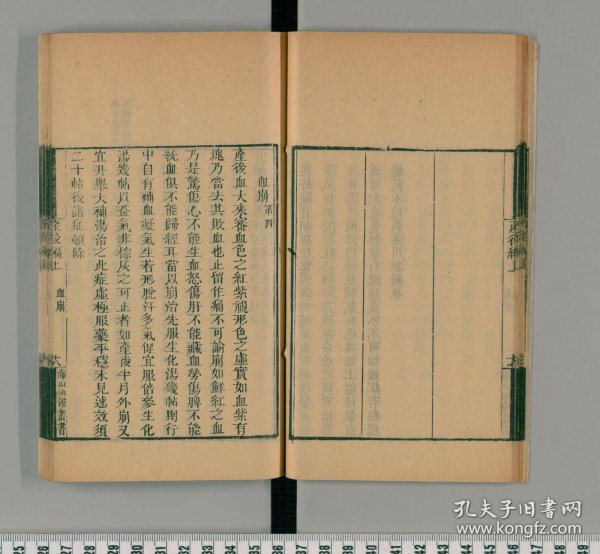 血崩 第四
產後血大來審血色之紅紫視形色之虛實如血紫有
塊乃當去其敗血也止留作痛不可論崩如鮮紅之血
乃是驚傷心不能生血怒傷肝不能藏血勞傷脾不能
統血俱不能歸經耳當以崩治先服生化湯幾帖則行
中自有補血凝氣生若形脫汗多氣促宜服倍參生化
湯幾帖以益氣非棕灰之可止者如產後半月外崩又
宜升舉大補湯治之此症虛極服藥平穩未見速效須
二十帖後諸症頓除
產後編上
血崩
海山仙館叢書
孔夫子旧书网
www.kongfz.com
25 26 27 28 29 30 31 32 33 34 35 36 37 38 39 40 41 42 43 44 45 46 47 48 49